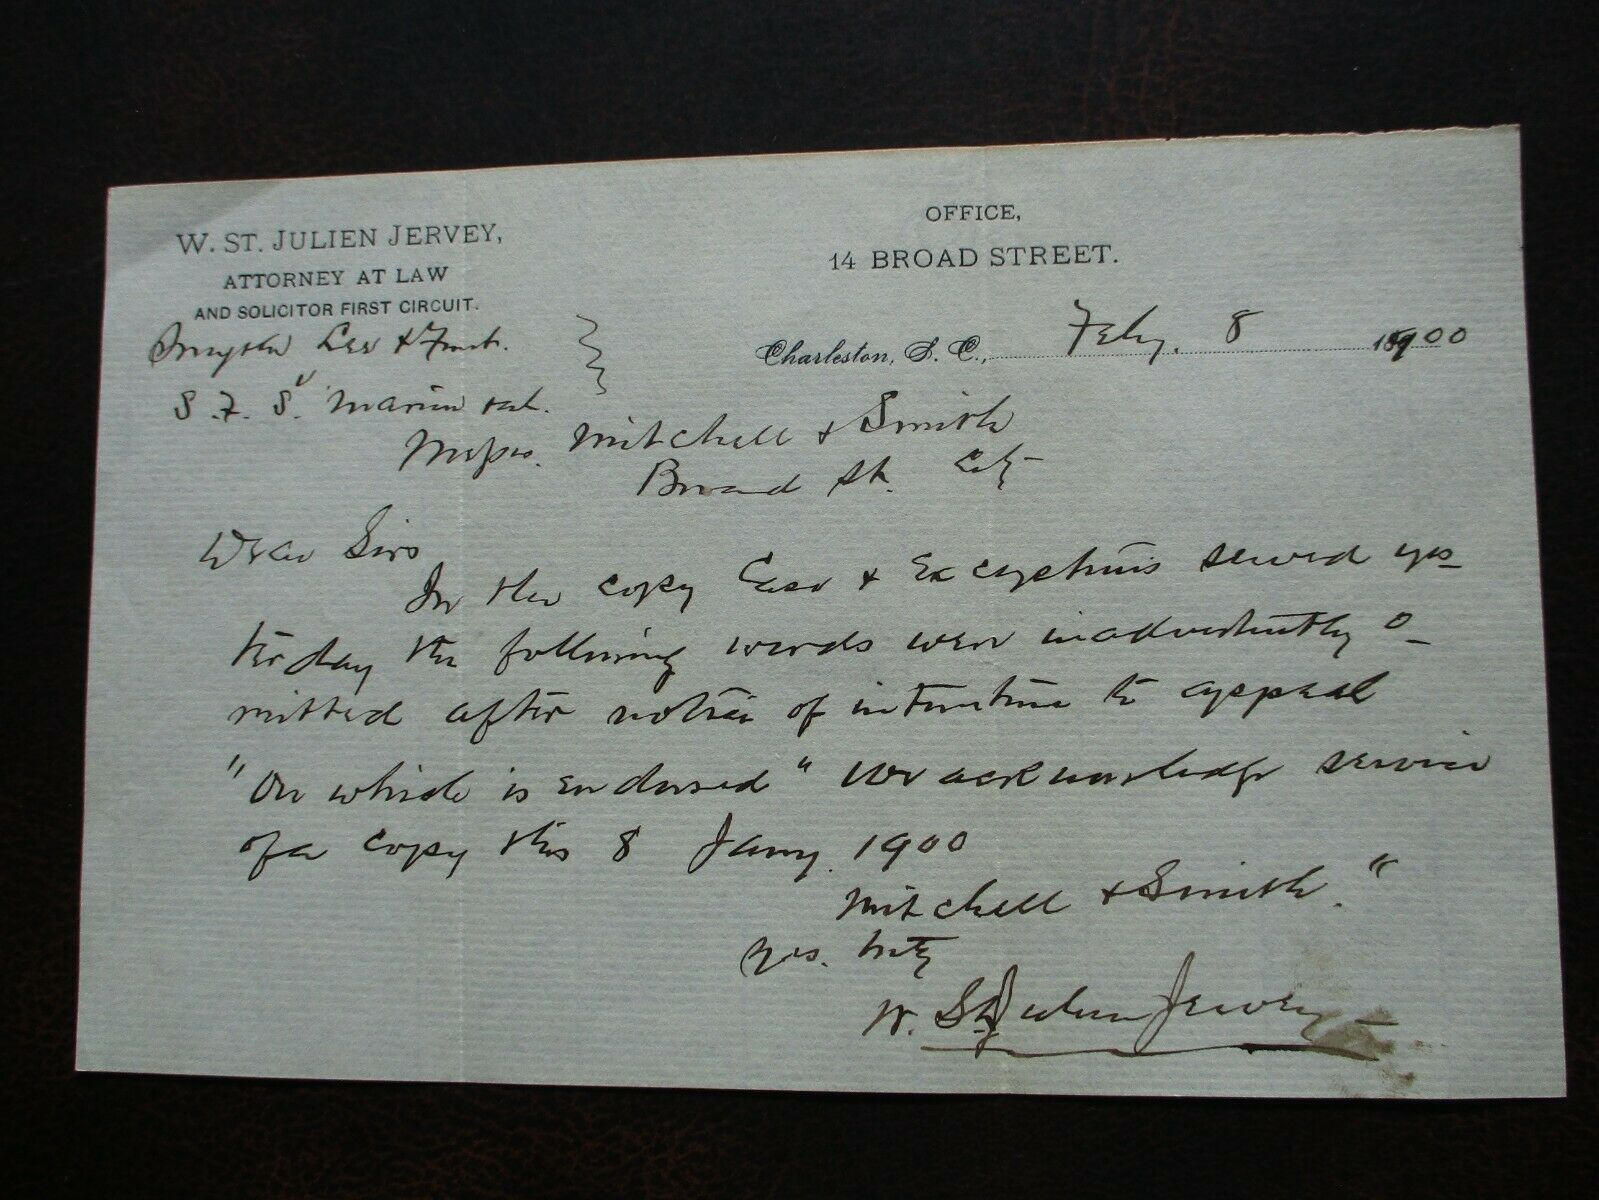 W. ST. JULIEN JERVEY,
ATTORNEY AT LAW
AND SOLICITOR FIRST CIRCUIT.
OFFICE,
14 BROAD STREET.
Charleston, S. C., Feby. 8 1900
Smyth Lee & Frost.
S. F. S. Marion et al.
Messrs. Mitchell & Smith
Broad St. City
Dear Sirs
In the copy Case & Exceptions served yes-
terday the following words were inadvertently o-
mitted after notice of intention to appeal
"On which is endorsed" We acknowledge service
of a copy this 8 Jany. 1900
Mitchell & Smith."
Yrs. truly
W. St Julien Jervey